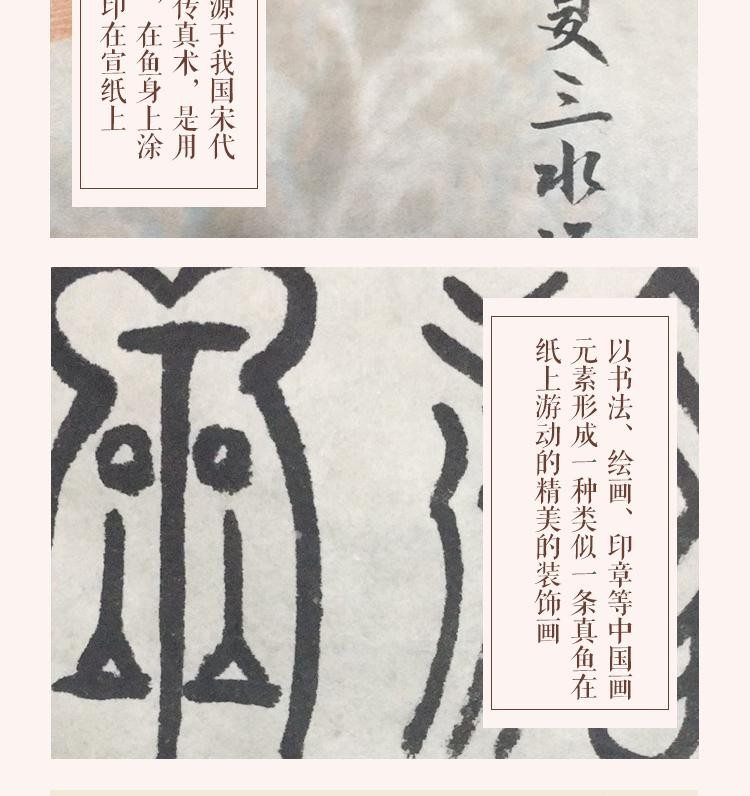 源于我国宋代
传真术，是用
，在鱼身上涂
印在宣纸上
夏三水
以书法、绘画、印章等中国画
元素形成一种类似一条真鱼在
纸上游动的精美的装饰画